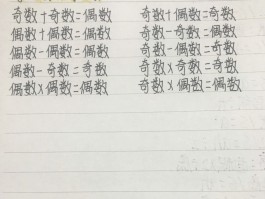 奇数+奇数=偶数 奇数+偶数=奇数
偶数+偶数=偶数 奇数-奇数=偶数
偶数-偶数=偶数 奇数-偶数=奇数
偶数-奇数=奇数 奇数×奇数=奇数
偶数×偶数=偶数 奇数×偶数=偶数